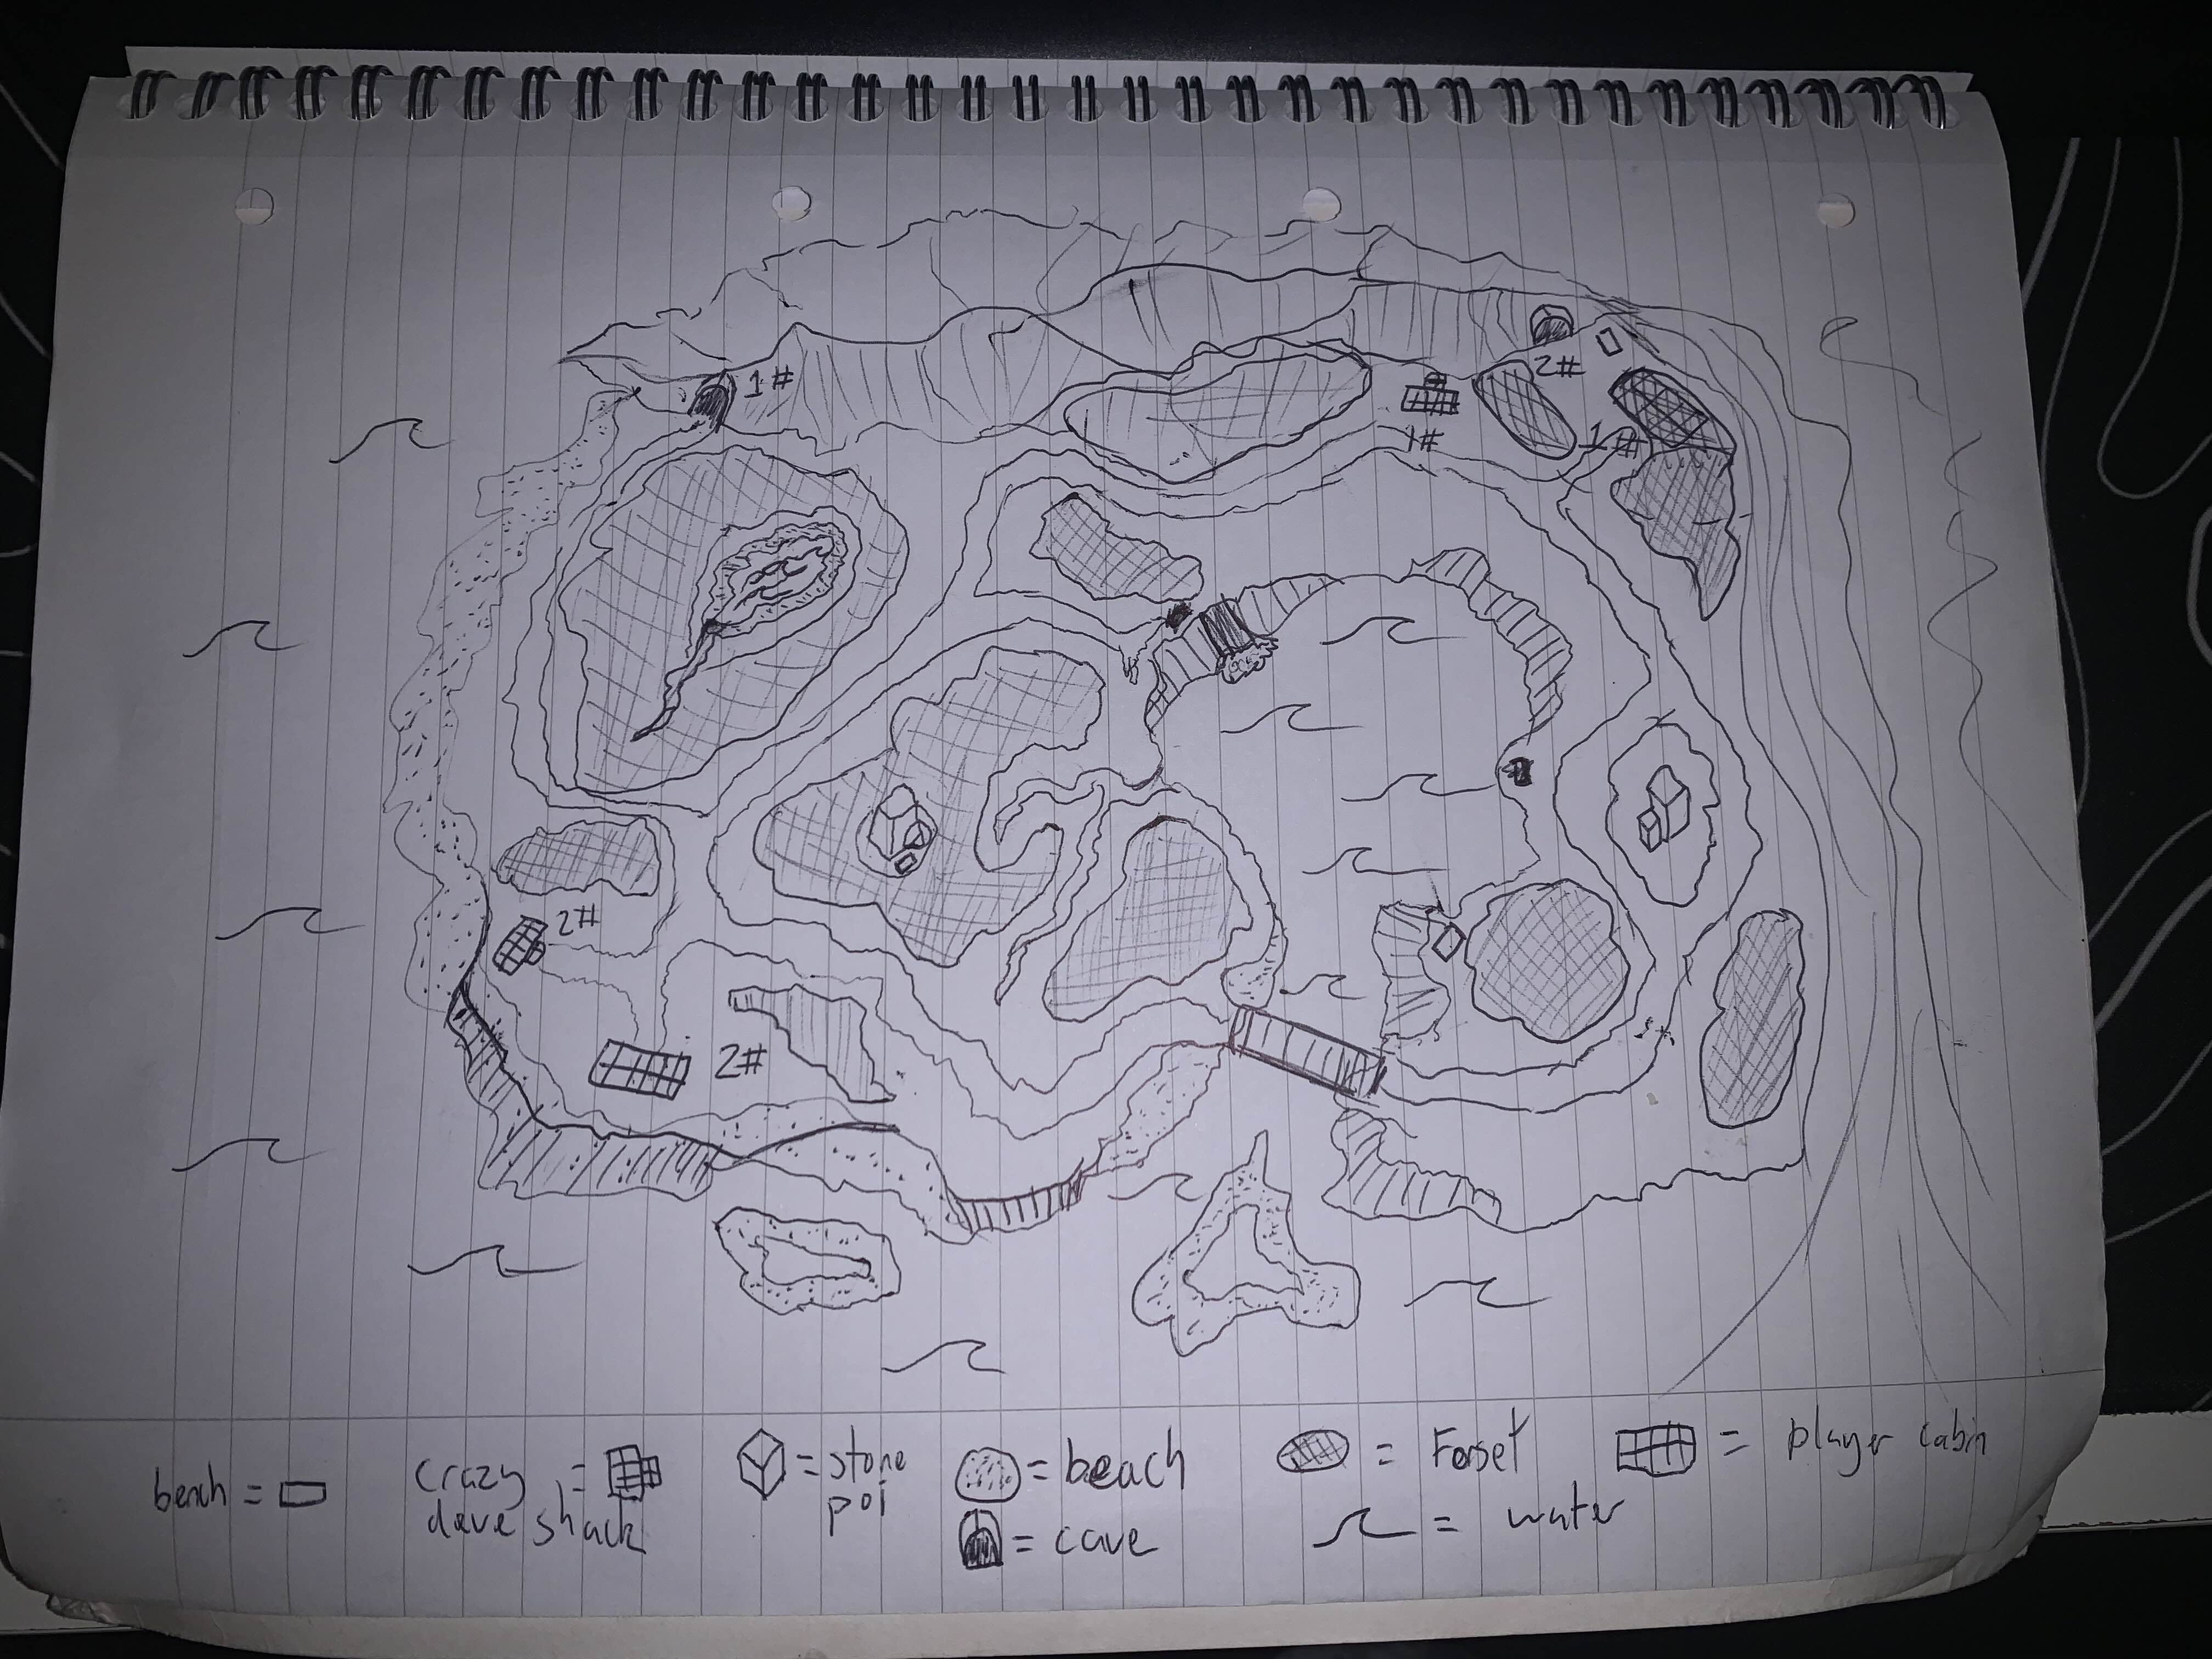 1#
2#
1#
1#
2#
2#
bench =
crazy =
dave shack
= stone
poi
= beach
= cave
= Forset
= water
= player cabin